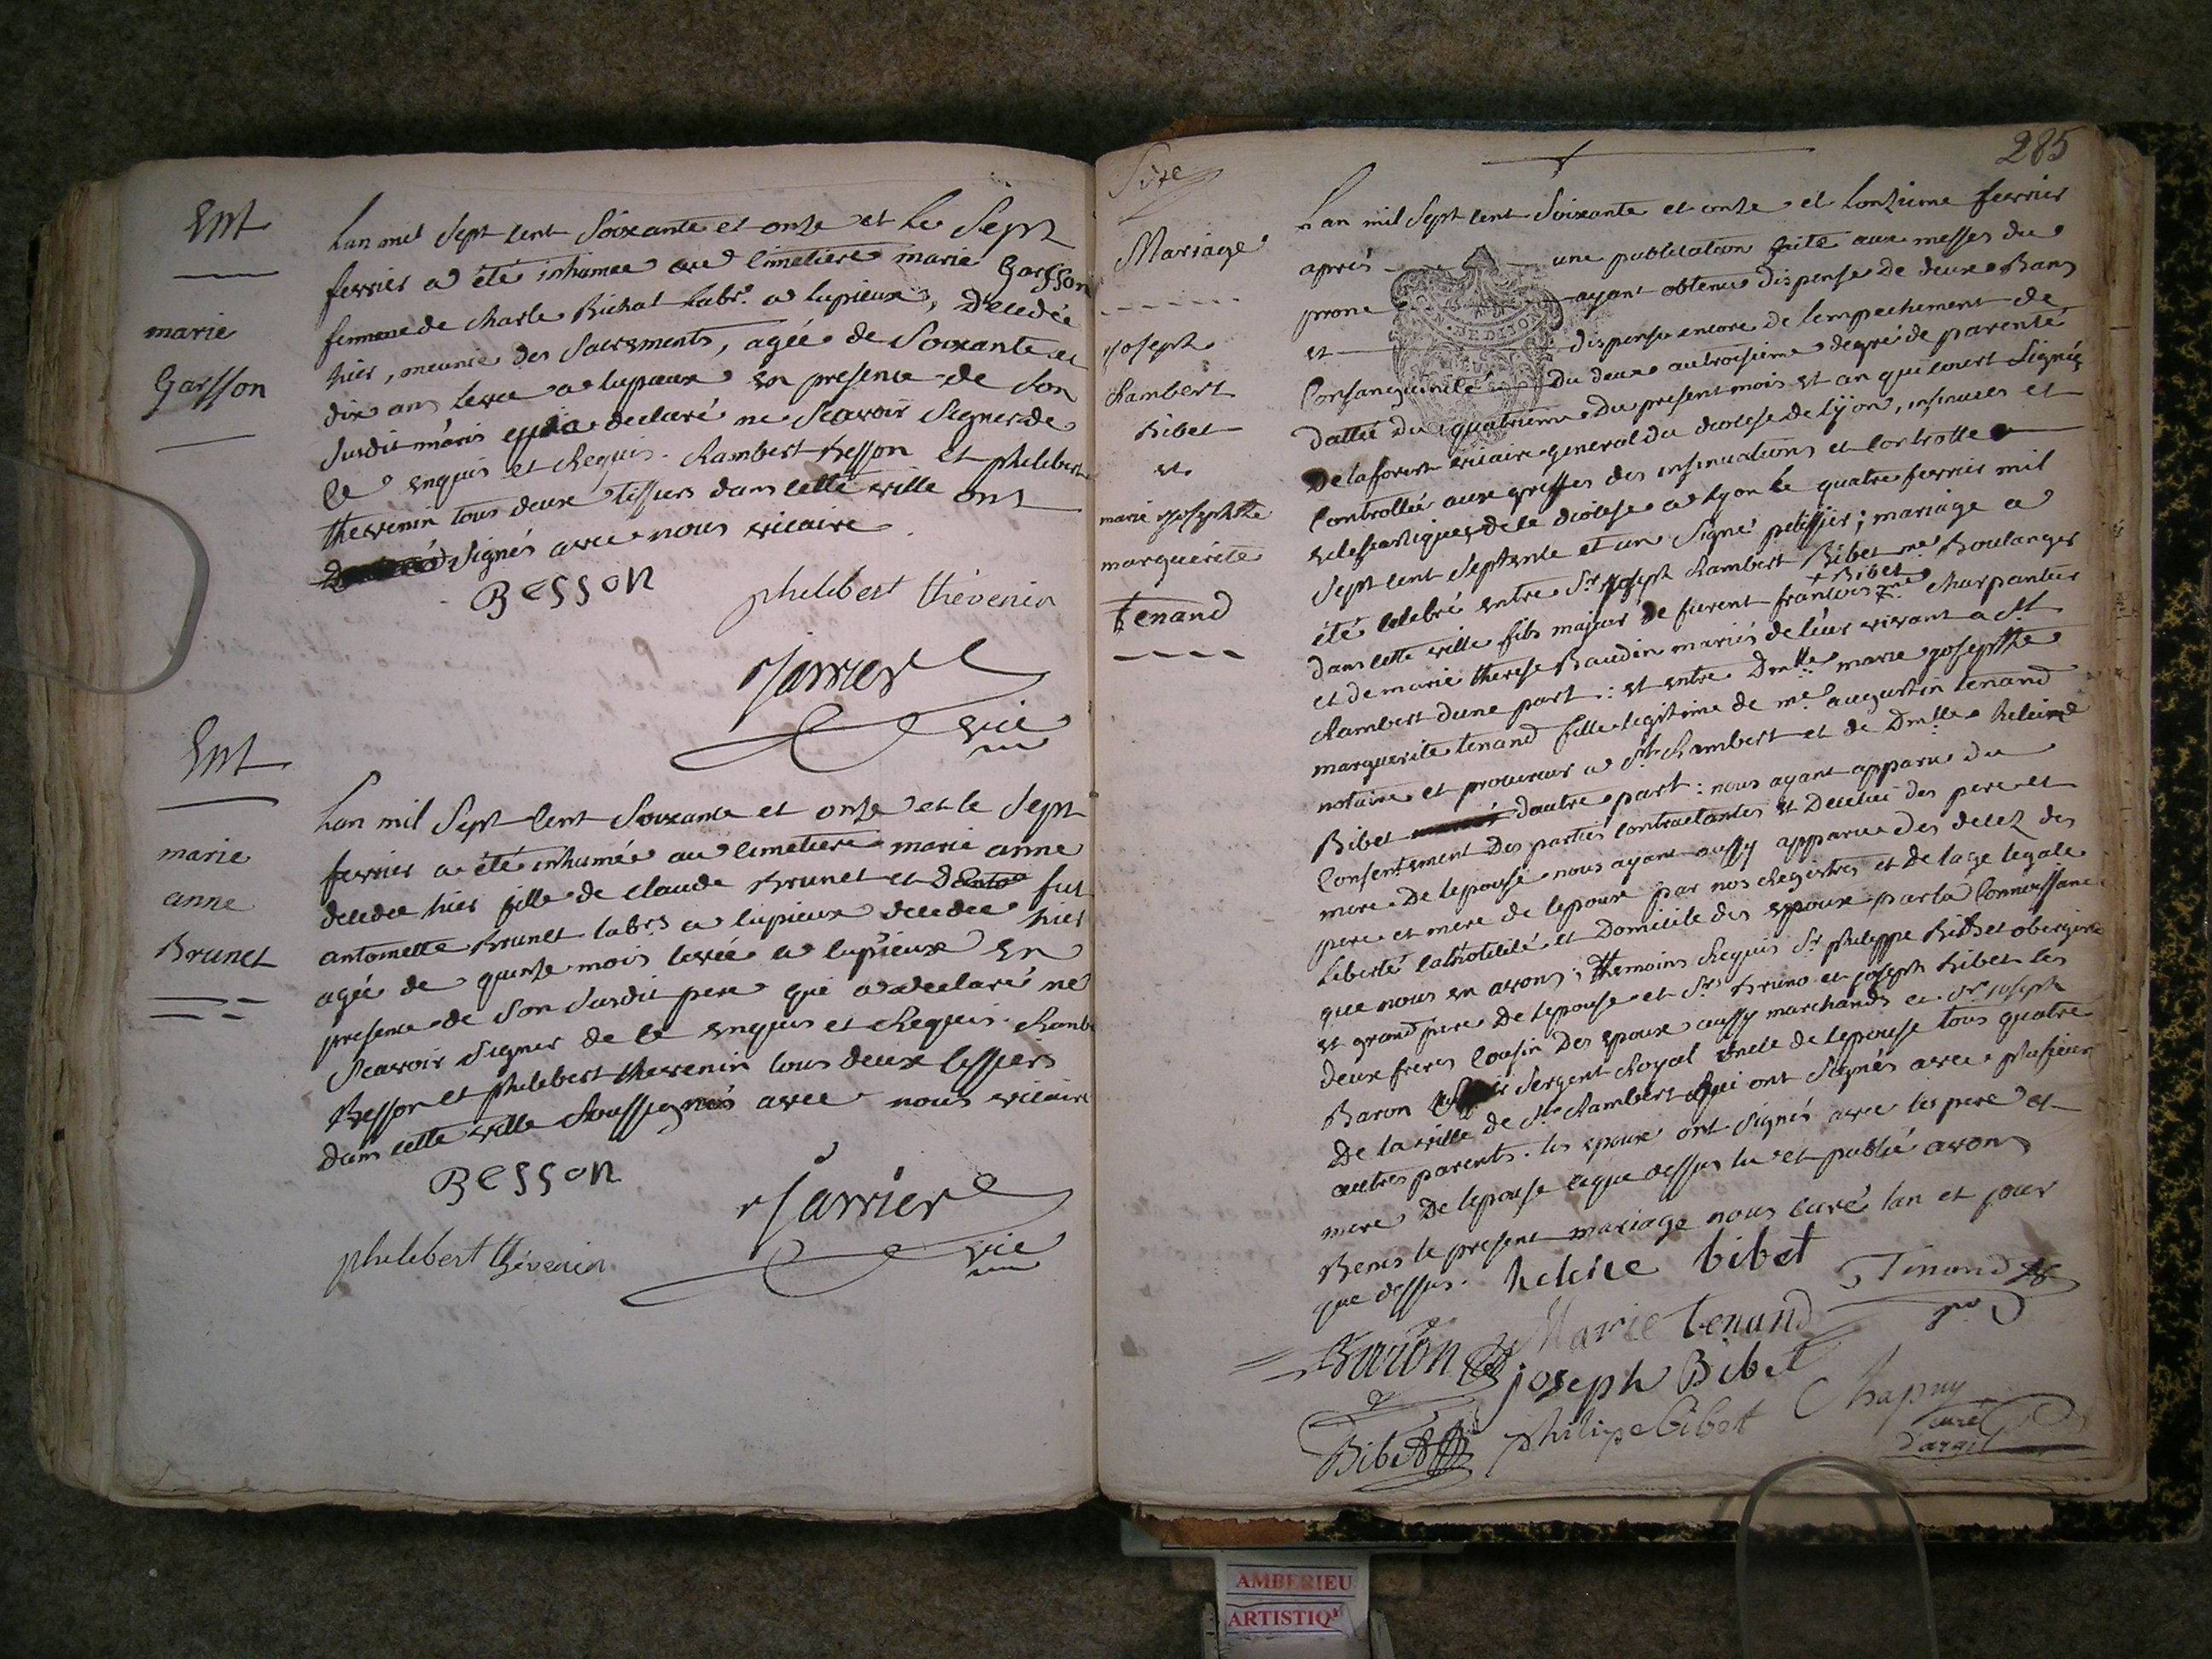 Ent
marie
Garsson
Lan mil sept cent soixante et onze et le sept
fevrier a été inhumee au cimetiere marie Garsson
femme de charle Richat labr. a lupieux, decedée
hier, meunie des sacrements, agée de soixante et
dix ans levee a lupieux en presence de son
susdit maris qui a declaré ne scavoir signer de
ce enquis et requis. Rambert Besson et philibert
thevenin tous deux tissiers dans cette ville ont
signés avec nous vicaire
Besson
philibert thévenin
Jarrier
vic
Ent
marie
anne
Brunet
Lan mil sept cent soixante et onze et le sept
fevrier a été inhumée au cimetiere marie anne
decedee hier fille de claude Brunet et de fut
antoinette Brunet labrs a lupieux decedee hier
agée de quinze mois levée a lupieux en
presence de son susdit pere qui a declaré ne
scavoir signer de ce enquis et requis. Ramb
Besson et philibert thevenin tous deux tissiers
dans cette ville soussignés avec nous vicaire
Besson
Jarrier
vic
philibert thévenin
285
Mariage
joseph
Rambert
Bibet
et
marie josephte
marguerite
tenand
Lan mil sept cent soixante et onze et lonzieme fevrier
après une publication faite aux messes du
prone ayant obtenu dispense de deux Bans
et dispense encore de lempechement de
consanguinité du deux au troisieme degré de parenté
dattée du quatrieme du present mois et an qui court signée
Delaforest vicaire general du diocese de lyon, insinuées et
controllée aux greffes des insinuations et controlle
eclesiastiques de le diocese a lyon le quatre fevrier mil
sept cent septente et un signé pelissier; mariage a
été celebré entre Sr joseph Rambert Bibet me Boulanger
dans cette ville fils majeur de furent francois + Bibet me charpantier
et de marie therese Baudin mariés de leur vivant a St
Rambert dune part: et entre Dmlle marie josephte
marguerite tenand fille legitime de me augustin tenand
notaire et procureur a St Rambert et de Dmlle heleine
Bibet dautre part: nous ayant apparu du
consentement des parties contractantes et de celui des pere et
mere de lepouse nous ayant aussy apparu des decez des
pere et mere de lepoux par nos registres et de lage legale
liberté catholicité et domicile des epoux par la connoissance
que nous en avons; themoins requis Sr philippe Bibet obergiste
et grand pere de lepouse et Srs Bruno et joseph Bibet les
deux freres cousin des epoux aussy marchands et Sr joseph
Baron sergent royal oncle de lepouse tous quatre
de la ville de St Rambert qui ont signés avec plusieurs
autres parents. les epoux ont signés avec les pere et
mere de lepouse ce que dessus lu et publié avons
Benis le present mariage nous curé lan et jour
que dessus.
heleine bibet
Tenand
Baron
Marie tenand
joseph Bibet
Chapuy
curé
Bibet
philipe bibet
AMBERIEU
ARTISTIQ